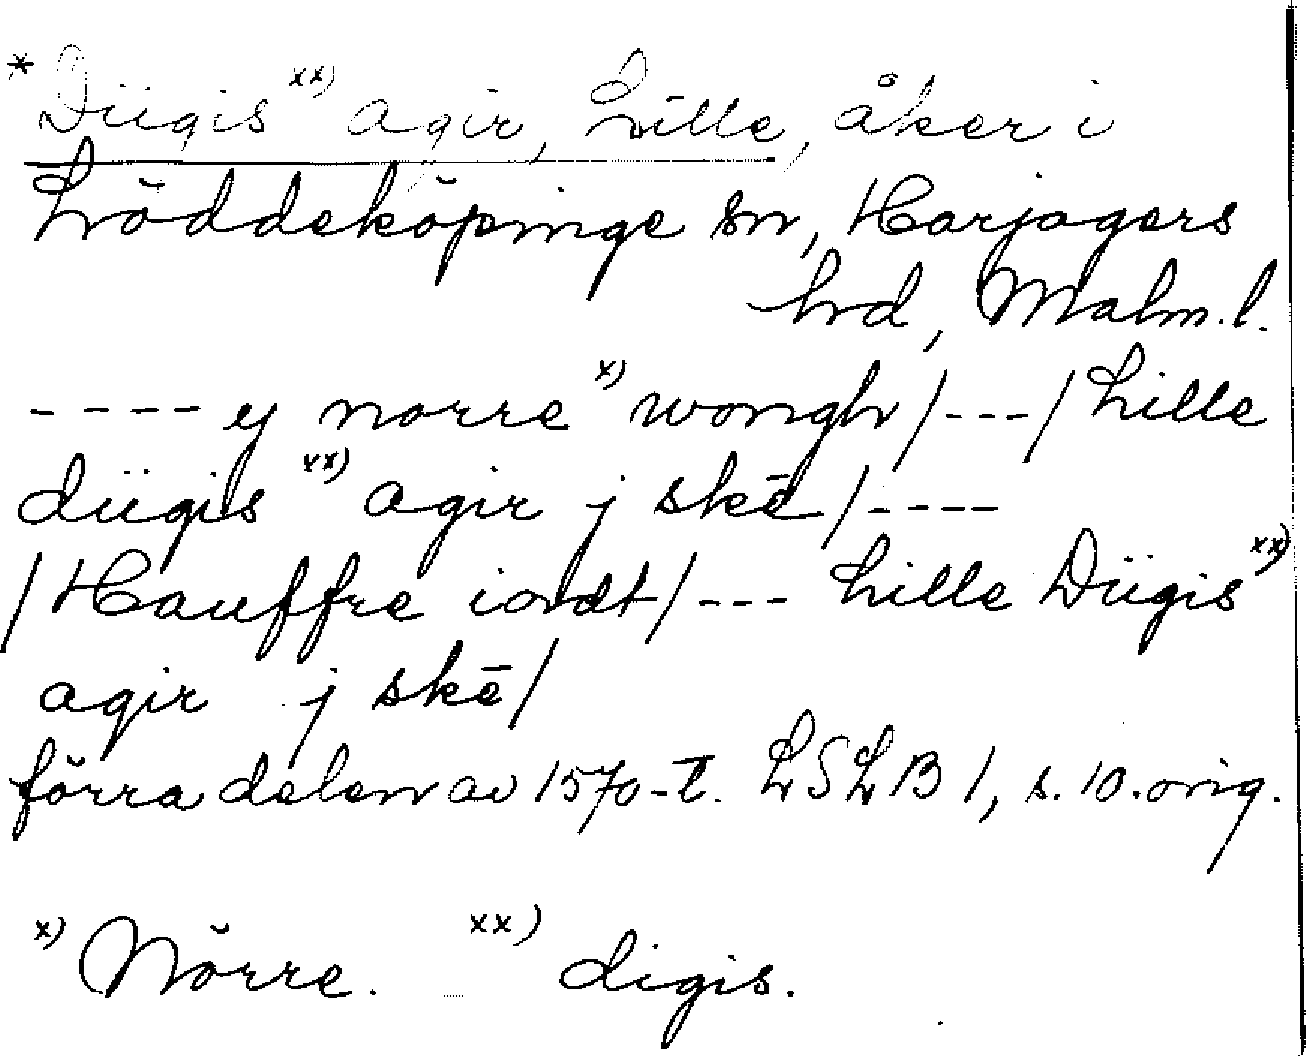 * Düigis xx) agir, Lille, åker i
Löddeköpinge sn, Harjagers
hd, Malm.l.
---- ej norre x) wongh/---/Lille
düigis xx) agir j skē/----
/Hauffre iordt/--- Lille Düigis xx)
agir j skē/
förra delen av 1570-t. LSLB 1, s. 10. orig.
x) Nörre. xx) digis.